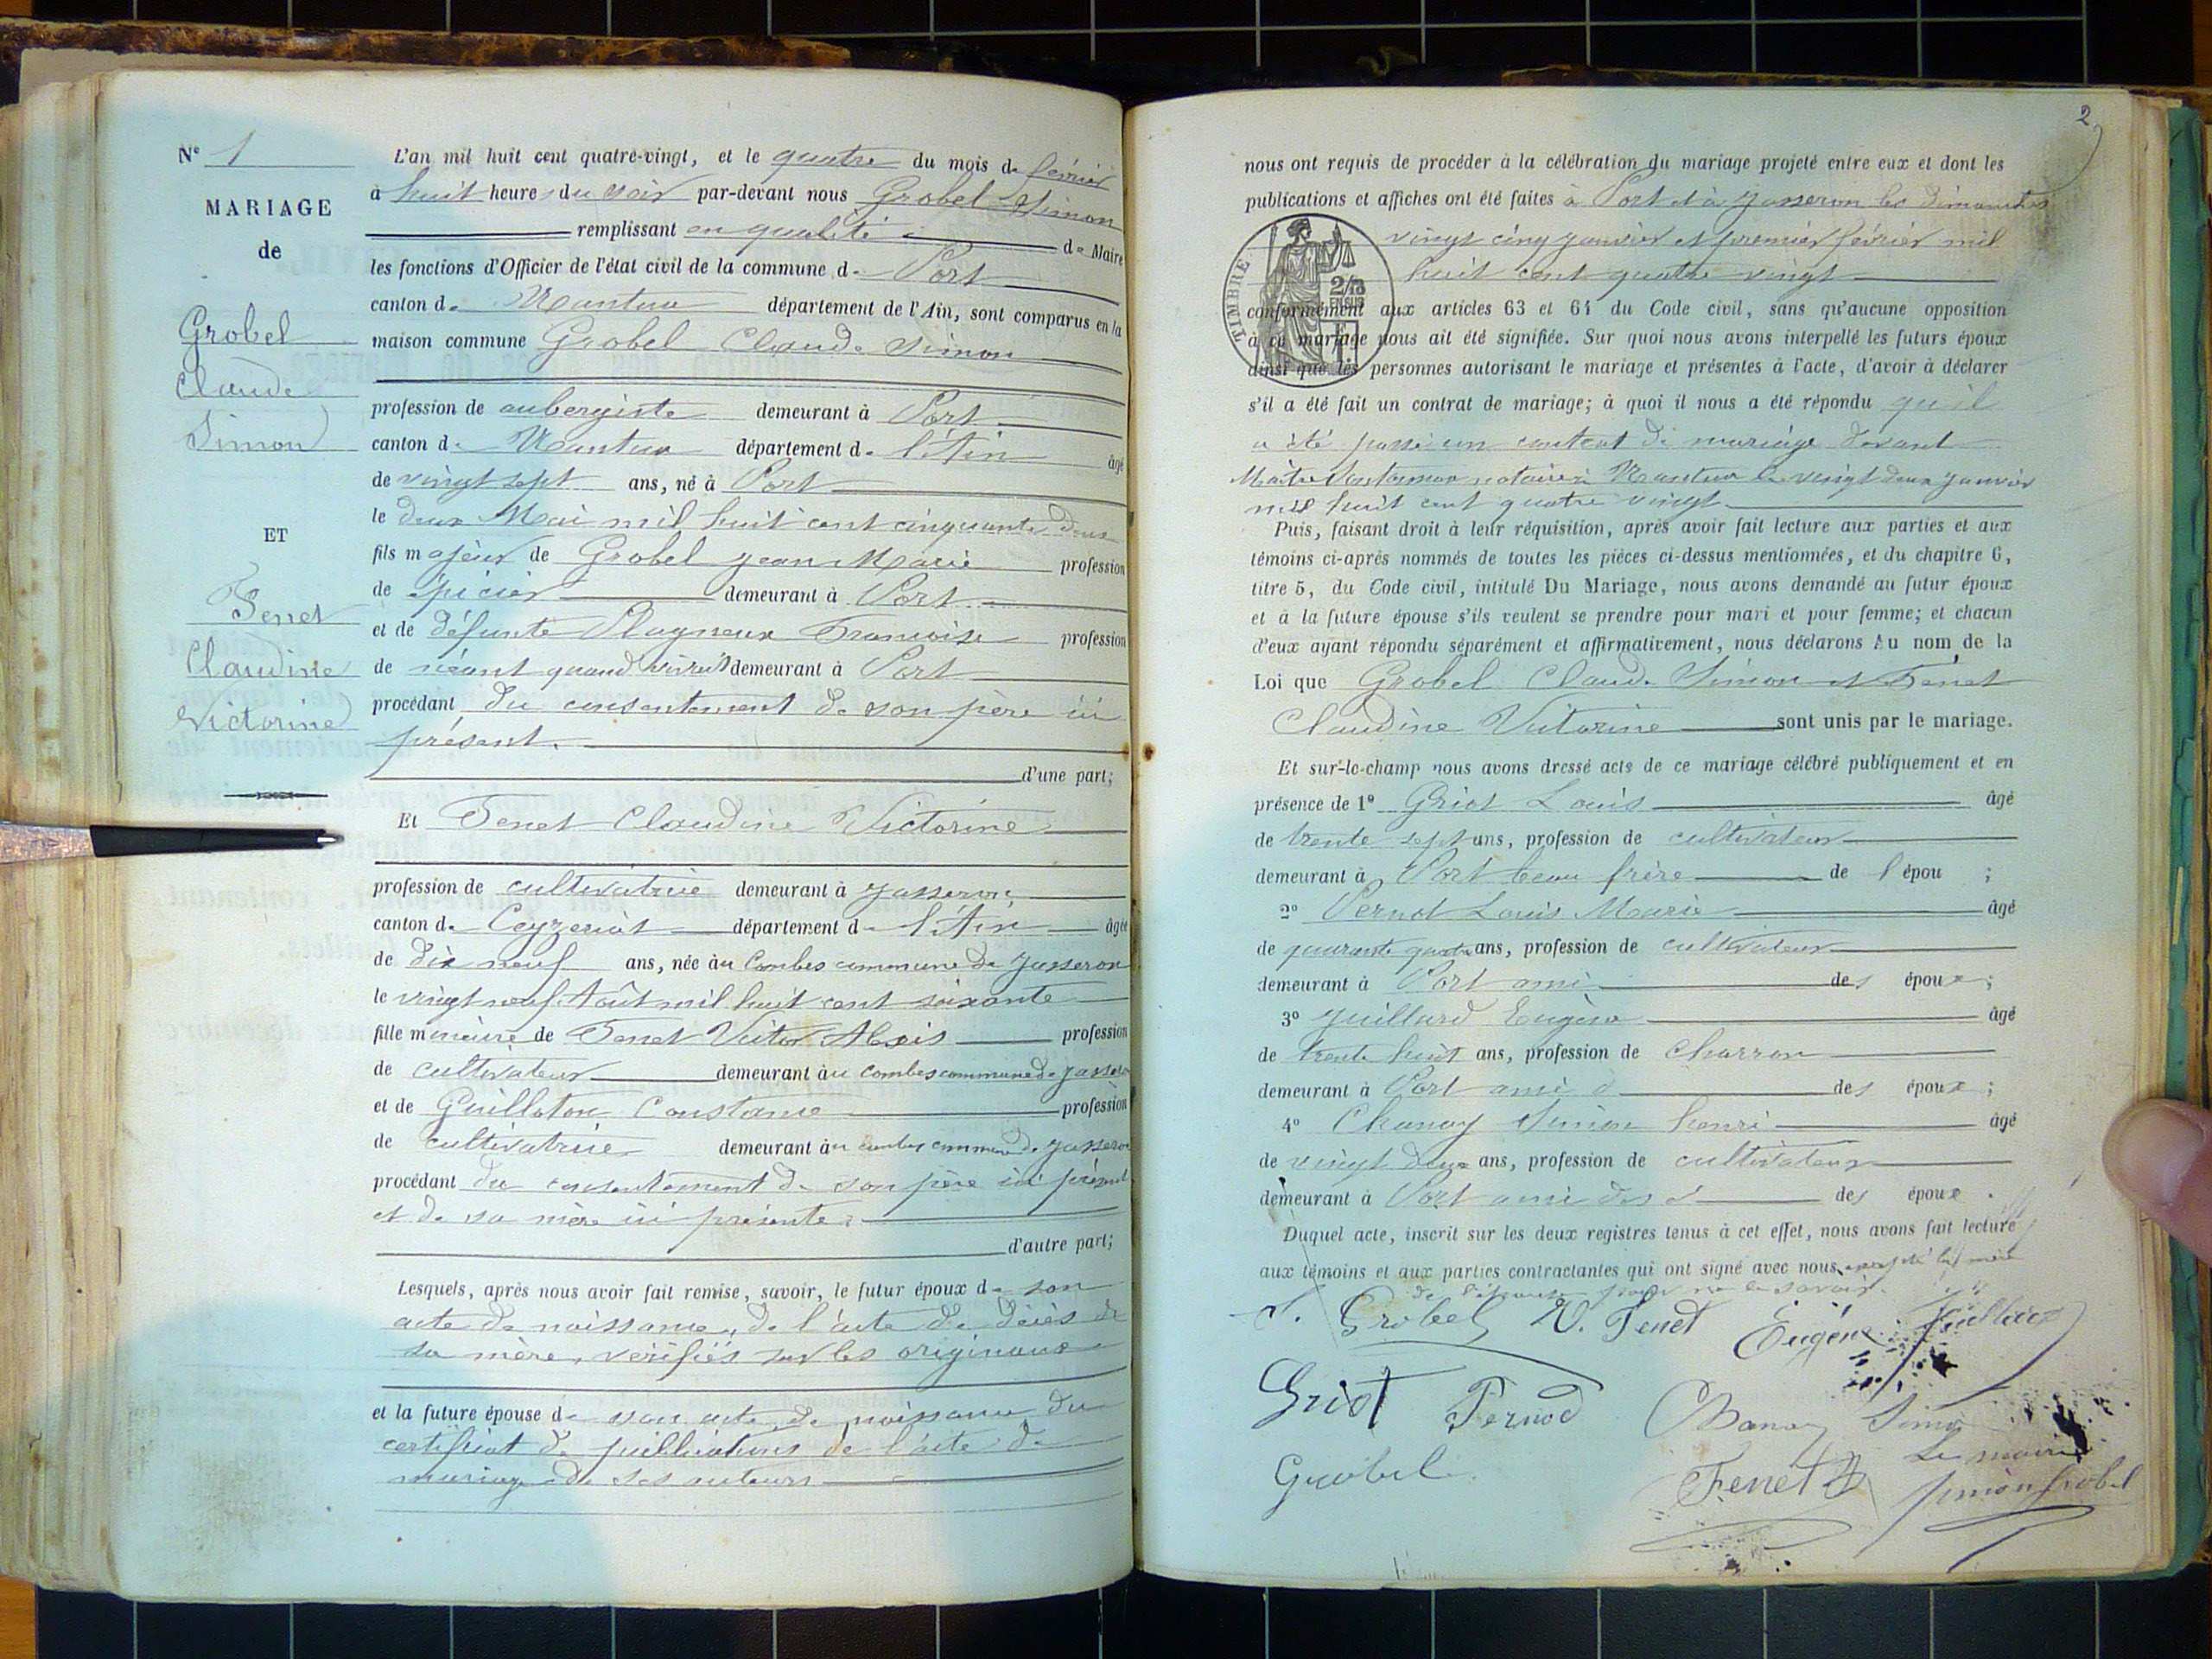 N° 1
MARIAGE
de
Grobel
Claude
Simon
ET
Fenet
Claudine
Victorine
L'an mil huit cent quatre-vingt, et le quatre du mois de février
à huit heures du soir par-devant nous Grobel Simon
remplissant en qualité de Maire
les fonctions d'Officier de l'état civil de la commune de Port
canton de Nantua département de l'Ain, sont comparus en la
maison commune Grobel Claude Simon
profession de aubergiste demeurant à Port
canton de Nantua département de l'Ain âgé
de vingt sept ans, né à Port
le deux Mai mil huit cent cinquante deux
fils majeur de Grobel Jean Marie profession
de épicier demeurant à Port
et de défunte Plagneux Francoise profession
de néant quand vivait demeurant à Port
procédant du consentement de son père ici
présent.
d'une part;
Et Fenet Claudine Victorine
profession de cultivatrice demeurant à Jasseron
canton de Ceyzeriat département de l'Ain âgée
de dix neuf ans, née au Combes commune de Jasseron
le vingt neuf Août mil huit cent soixante
fille mineure de Fenet Victor Alexis profession
de cultivateur demeurant au combes commune de Jasseron
et de Guillaton Constance profession
de cultivatrice demeurant au combes commune de Jasseron
procédant du consentement de son père ici présent
et de sa mère ici présente.
d'autre part;
Lesquels, après nous avoir fait remise, savoir, le futur époux de son
acte de naissance, de l'acte de décès de
sa mère, vérifiés sur les originaux
et la future épouse de son acte de naissance du
certificat de publications de l'acte de
mariage de ses auteurs
2
nous ont requis de procéder à la célébration du mariage projeté entre eux et dont les
publications et affiches ont été faites à Port et à Jasseron les dimanches
vingt cinq janvier et premier février mil
huit cent quatre vingt
TIMBRE
2/10
EN SUS
conformément aux articles 63 et 64 du Code civil, sans qu'aucune opposition
à ce mariage nous ait été signifiée. Sur quoi nous avons interpellé les futurs époux
ainsi que les personnes autorisant le mariage et présentes à l'acte, d'avoir à déclarer
s'il a été fait un contrat de mariage; à quoi il nous a été répondu qu'il
a été passé un contrat de mariage devant
Maître notaire à Nantua le vingt deux janvier
mil huit cent quatre vingt
Puis, faisant droit à leur réquisition, après avoir fait lecture aux parties et aux
témoins ci-après nommés de toutes les pièces ci-dessus mentionnées, et du chapitre 6,
titre 5, du Code civil, intitulé Du Mariage, nous avons demandé au futur époux
et à la future épouse s'ils veulent se prendre pour mari et pour femme; et chacun
d'eux ayant répondu séparément et affirmativement, nous déclarons Au nom de la
Loi que Grobel Claude Simon et Fenet
Claudine Victorine sont unis par le mariage.
Et sur-le-champ nous avons dressé acte de ce mariage célébré publiquement et en
présence de 1° Griot Louis âgé
de trente sept ans, profession de cultivateur
demeurant à Port beau frère de l'épou ;
2° Pernod Louis Marie âgé
de quarante quatre ans, profession de cultivateur
demeurant à Port ami des époux ;
3° Juillard Eugène âgé
de trente huit ans, profession de charron
demeurant à Port ami d des époux ;
4° Chanay Simon henri âgé
de vingt deux ans, profession de cultivateur
demeurant à Port ami des d des époux .
Duquel acte, inscrit sur les deux registres tenus à cet effet, nous avons fait lecture
aux témoins et aux parties contractantes qui ont signé avec nous, excepté la mère
de l'épouse pour ne le savoir.
Grobel V. Fenet Eugène Juillard
Griot Pernod Chanay Simon
Le maire
Grobel Fenet Simon Grobel